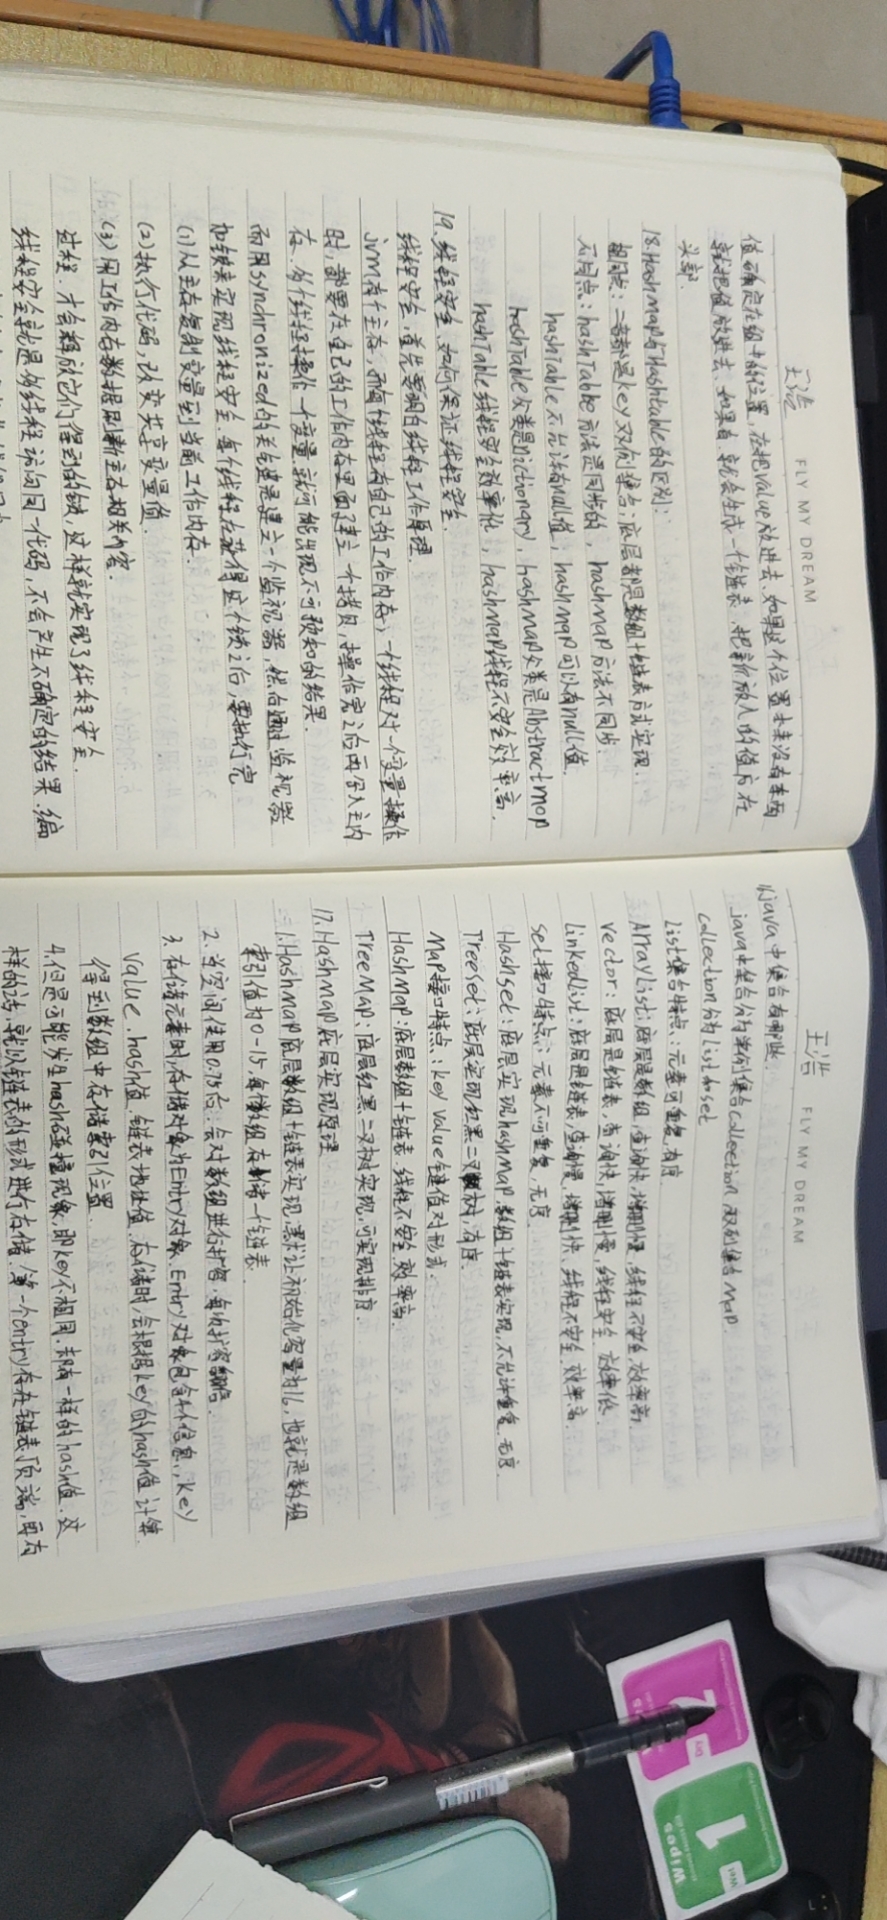 王浩 FLY MY DREAM
值确定在组中的位置,在把value放进去,如果这个位置本来没有东西
就把值放进去,如果有,就会生成一个链表,把新放入的值方在
头部.
18.Hashmap与Hashtable的区别:
相同点:二者都是key双列集合;底层都是数组+链表方式实现.
不同点:hashTable方法是同步的,hashmap方法不同步.
hashTable不允许有null值,hashmap可以有null值.
hashTable父类是Dictionary,hashmap父类是Abstractmap
hashTable线程安全效率低,hashmap线程不安全效率高.
19.线程安全,如何保证线程安全.
线程安全,首先要明白线程工作原理.
Jvm有个主存,而每个线程有自己的工作内存,一个线程对一个变量操作
时,都要在自己的工作内存里面建立一个拷贝,操作完之后再写入主内
存.多个线程操作一个变量,就可能出现不可预知的结果.
而用synchronized的关键是建立一个监视器,然后通过监视器
加锁来实现线程安全.每个线程在获得这个锁之后,要执行完
(1)从主存复制变量到当前工作内存.
(2)执行代码,改变共享变量值.
(3)用工作内存数据刷新主存相关内容.
过程,才会释放它们得到的锁,这样就实现了线程安全.
线程安全就是多线程访问同一代码,不会产生不确定的结果.编
王浩 FLY MY DREAM
java中集合有哪些.
java中集合分为单列集合Collection,双列集合Map.
Collection分为List和set
List集合特点:元素可重复,有序
ArrayList:底层是数组,查询快,增删慢,线程不安全,效率高.
Vector:底层是链表,查询快,增删慢,线程安全,效率低.
LinkedList:底层是链表,查询慢,增删快,线程不安全,效率高.
set接口特点:元素不可重复,无序
Hashset:底层实现hashMap,数组+链表实现,不允许重复,无序
TreeSet:底层实现红黑二叉树,有序
Map接口特点:key value键值对形式.
HashMap:底层数组+链表,线程不安全,效率高
TreeMap:底层红黑二叉树实现,可实现排序.
17.HashMap底层实现原理
1.HashMap底层数组+链表实现,默认初始化容量为16,也就是数组
索引值为0-15,每个数组存储一个链表.
2.当空间使用0.75后,会对数组进行扩容,每次扩容
3.存储元素时,存储对象为Entry对象.Entry对象包含4个信息,key
value.hash值.链表地址值.存储时,会根据key的hash值计算
得到数组中存储索引位置.
4.但是可能发生hash碰撞现象,即key不相同,却有一样的hash值.这
样的话,就以链表的形式进行存储,第一个entry存在链表顶端,再有
Wipes
1
Wet
2
Dry